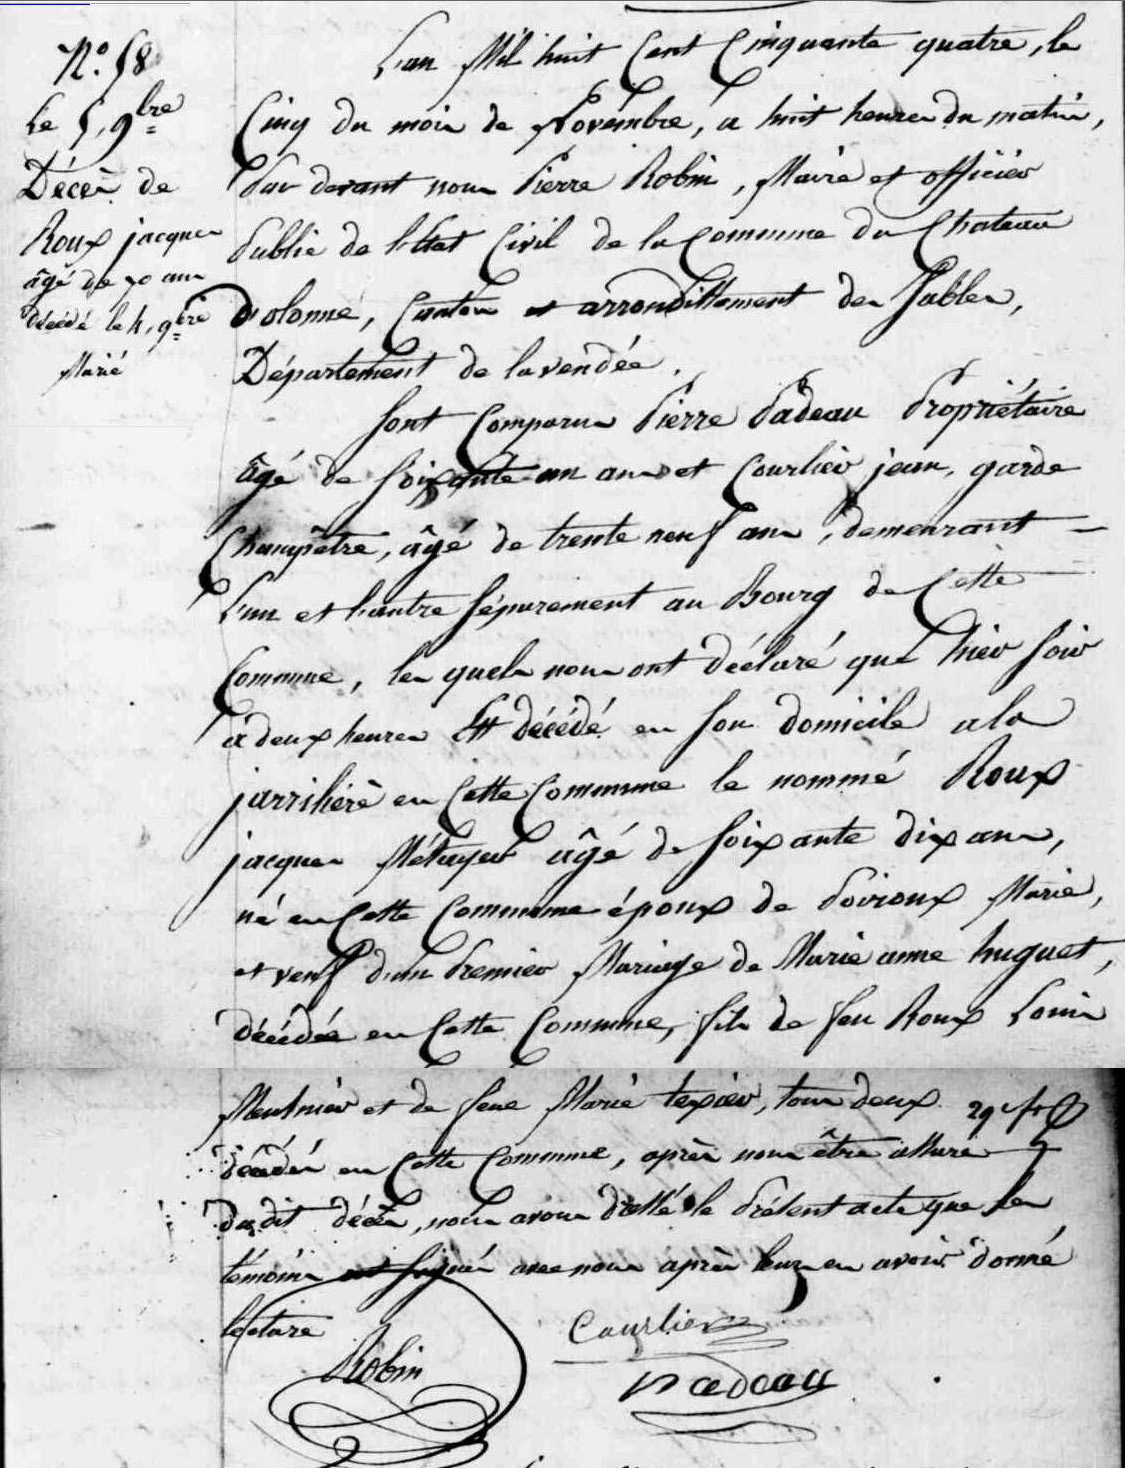 N.° 58
Le 5, 9bre
Décès de
Roux jacques
âgé de 70 ans
décédé le 4, 9bre
Marié
L'an Mil huit Cent Cinquante quatre, le
Cinq du mois de Novembre, a huit heures du matin,
Par devant nous Pierre Robin, Maire et officier
Public de l'Etat Civil de la Commune du Chateau
d'olonne, Canton et arrondissement des Sables,
Département de la vendée.
Sont Comparus Pierre Padeau Propriétaire
âgé de Soixante un ans et Courlier jean, garde
Champêtre, âgé de trente neuf ans, demeurant
L'un et l'autre Séparement au Bourg de Cette
Commune, les quels nous ont déclaré que hier Soir
à deux heures Est décédé en Son domicile a la
jarrihère en Cette Commune le nommé Roux
jacques Métayer âgé de Soixante dix ans,
né en Cette Commune époux de Poiroux Marie,
et veuf d'un Premier Mariage de Marie anne huguet,
décédée en Cette Commune, fils de feu Roux Louis
Meulnier et de feue Marie texier, tous deux
décédés en Cette Commune, après nous être assuré
du dit décès, nous avons dressé le Présent acte que les
témoins ont Signés avec nous après leur en avoir donné
lecture
Robin
Courlier
Padeau